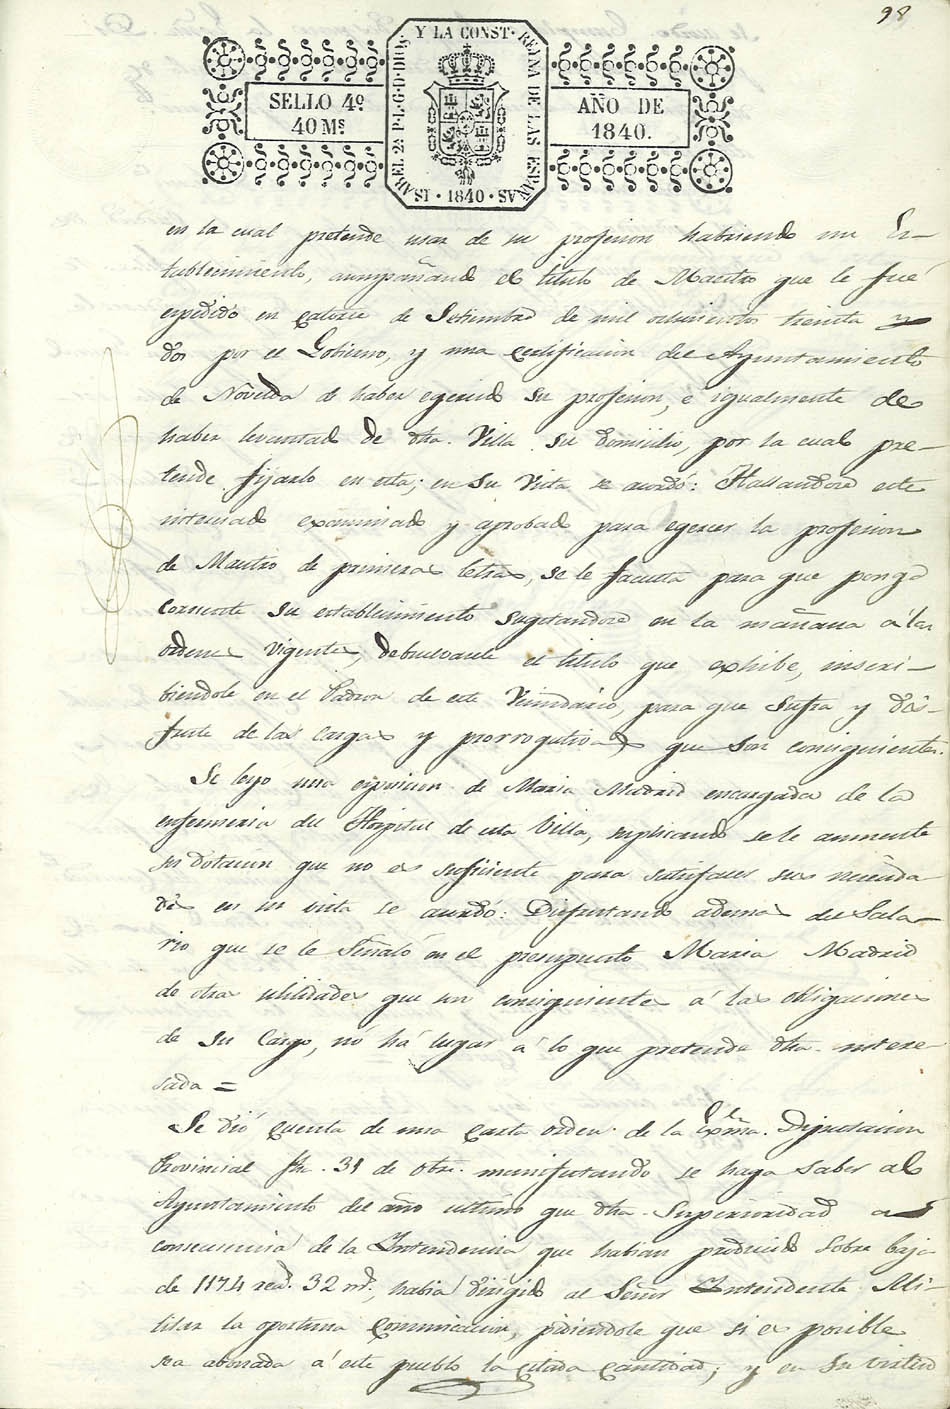 98
ISABEL 2ª P. L. G. D. DIOS Y LA CONST. REYNA DE LAS ESPAÑAS · 1840 ·
SELLO 4º
40 Ms
AÑO DE
1840.
en la cual pretende usar de su profesion habriendo un Es-
tablecimiento, acompañando el titulo de Maestro que le fué
expedido en catorce de Setiembre de mil ochocientos treinta y
dos por el Gobierno, y una certificacion del Ayuntamiento
de Novelda de haber egercido su profesion, é igualmente de
haber levantado de dha. Villa su domicilio, por la cual pre-
tende fijarlo en esta; en su vista se acordó: Hallandose este
interesado examinado y aprobado para egercer la profesion
de Maestro de primeras letras, se le faculta para que ponga
corriente su establecimiento sugetandose en la mañana á las
ordenes vigentes, debuelvasele el titulo que exhibe, inscri-
biendole en el Padron de este Vecindario, para que sufra y dis-
frute de las cargas y prorrogativas que son consiguientes.
Se leyo una esposicion de Maria Madrid encargada de la
enfermeria del Hospital de esta Villa, suplicando se le aumente
su dotacion que no es suficiente para satisfacer sus necesida-
des en su vista se acordó: Disfrutando ademas del Sala-
rio que se le Señaló en el presupuesto Maria Madrid
de otras utilidades que son consiguientes á las obligaciones
de su Cargo, nó há lugar á lo que pretende dha. intere-
sada =
Se dió cuenta de una carta orden de la Exma. Diputacion
Provincial fha. 31 de Obre. manifestando se haga saber al
Ayuntamiento del año ultimo que dha. Superioridad a
consecuencia de la Intendencia que habian producido sobre baja
de 1174 reas. 32 mrs., habia dirigido al Señor Intendente Mi-
litar la oportuna Comunicacion, pidiendole que si es posible
sea abonada á este pueblo la citada cantidad; y en su virtud